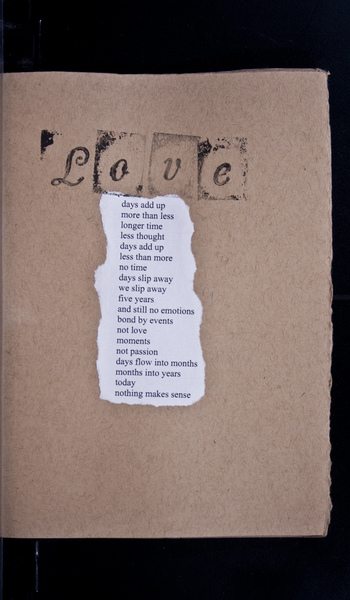 Love
days add up
more than less
longer time
less thought
days add up
less than more
no time
days slip away
we slip away
five years
and still no emotions
bond by events
not love
moments
not passion
days flow into months
months into years
today
nothing makes sense